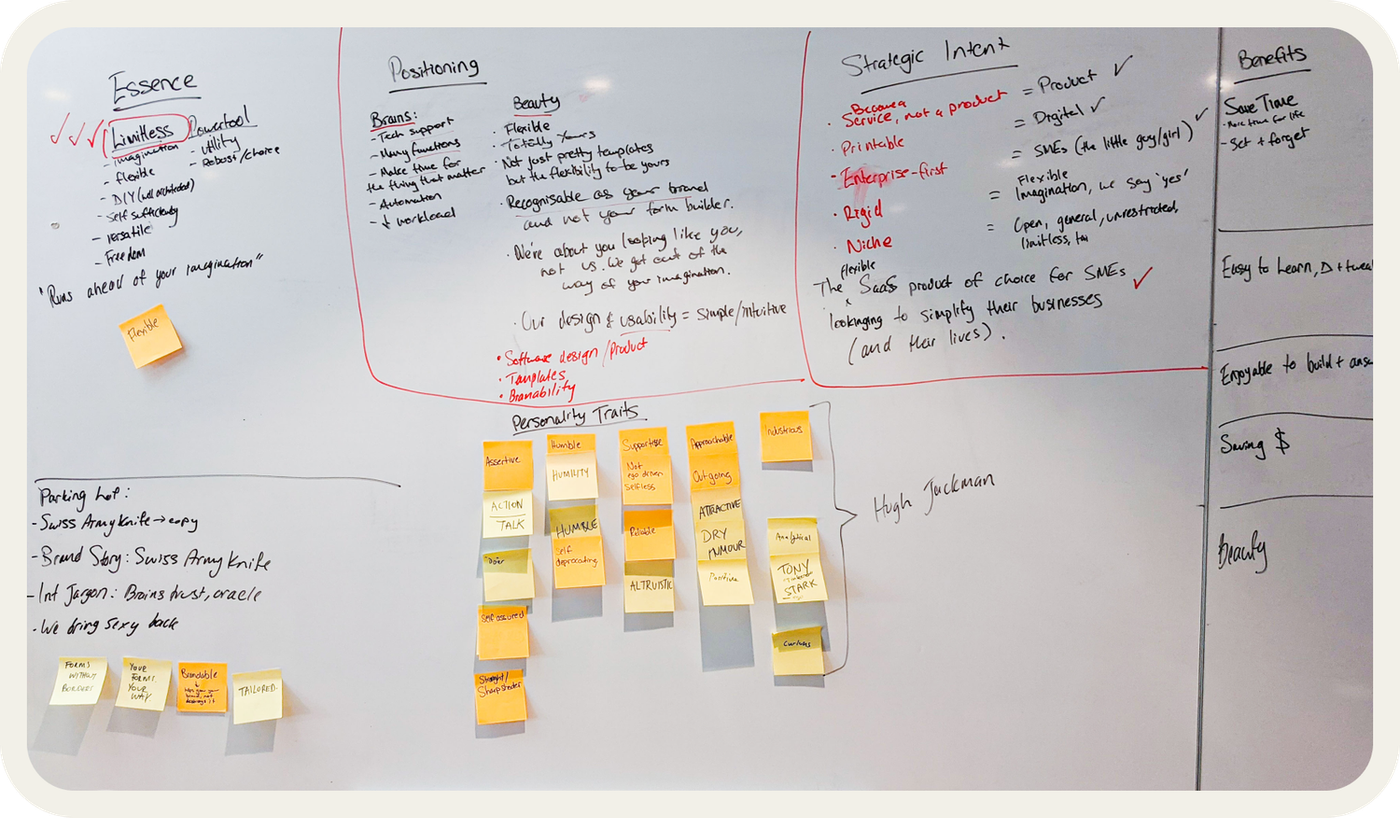 Essence
Limitless Powertool
- imagination
- flexible
- DIY (well architected)
- Self sufficiency
- versatile
- Freedom
- utility
- Robust/choice
"Runs ahead of your imagination"
Flexible
Positioning
Brains:
- Tech support
- Many functions
- Make time for
the thing that matter
- Automation
- ↓ workload
Beauty
· Flexible
· Totally Yours
· Not just pretty templates
but the flexibility to be yours
· Recognisable as your brand
and not your form builder.
· We're about you looking like you,
not us. We get out of the
way of your imagination.
· Our design & usability = simple/intuitive
• Software design/product
• Templates
• Branability
Strategic Intent
Become a
· Service, not a product = Product ✓
· Printable = Digital ✓
· Enterprise-first = SMEs (the little guy/girl) ✓
· Rigid = Flexible
Imagination, we say 'yes'
· Niche = Open, general, unrestricted,
limitless,
flexible
The SaaS product of choice for SMEs ✓
lookinging to simplify their businesses
(and their lives).
Benefits
Save Time
- More time for life
- Set + forget
Easy to Learn,
Enjoyable to build +
Saving $
Beauty
Personality Traits
Assertive
ACTION
TALK
Doer
Self assured
Straight/
Sharpshooter
Humble
HUMILITY
HUMBLE
Self
deprecating
Supportive
Not
ego driven
Selfless
Reliable
ALTRUISTIC
Approachable
Outgoing
ATTRACTIVE
DRY
HUMOUR
Positive
Industrious
Analytical
TONY
STARK
Curious
Hugh Jackman
Parking Lot:
- Swiss Army Knife → copy
- Brand Story: Swiss Army Knife
- Int Jargon: Brains trust, oracle
- We bring sexy back
FORMS
WITHOUT
BORDERS
YOUR
FORMS.
YOUR
WAY
Brandable
TAILORED.